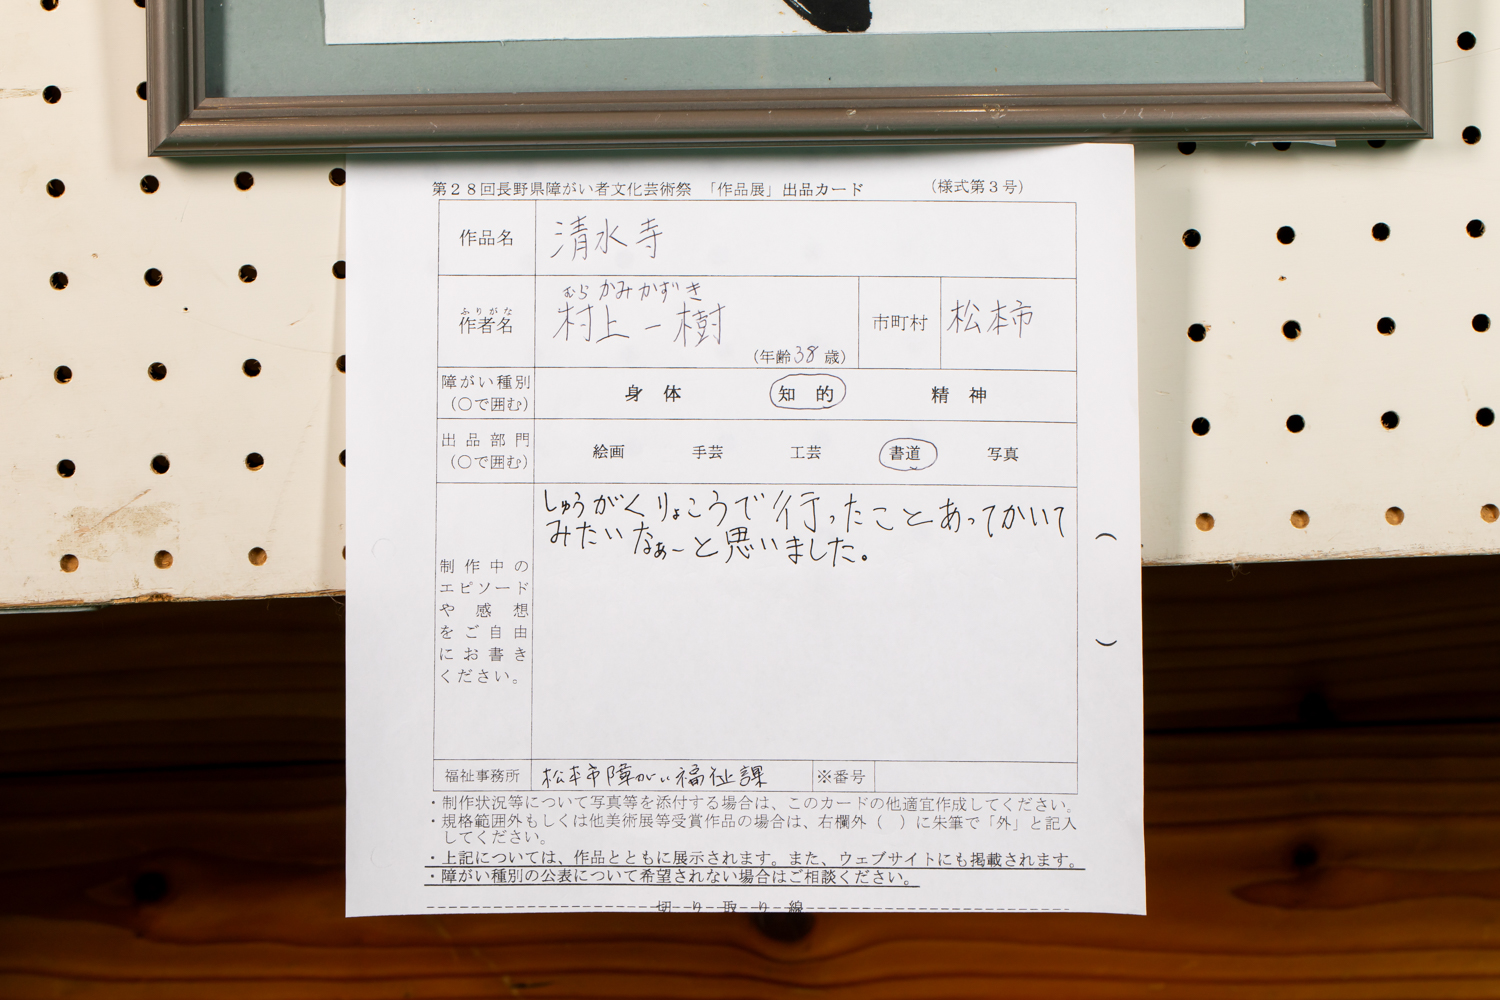 第28回長野県障がい者文化芸術祭 「作品展」出品カード （様式第3号）
作品名 清水寺
ふりがな むらかみかずき
作者名 村上一樹 （年齢38歳） 市町村 松本市
障がい種別（○で囲む） 身体 知的 精神
出品部門（○で囲む） 絵画 手芸 工芸 書道 写真
制作中の
エピソード
や感想
をご自由
にお書き
ください。
しゅうがくりょこうで行ったことあってかいて
みたいなぁーと思いました。
福祉事務所 松本市障がい福祉課 ※番号
・制作状況等について写真等を添付する場合は、このカードの他適宜作成してください。
・規格範囲外もしくは他美術展等受賞作品の場合は、右欄外（ ）に朱筆で「外」と記入
してください。
・上記については、作品とともに展示されます。また、ウェブサイトにも掲載されます。
・障がい種別の公表について希望されない場合はご相談ください。
切り取り線